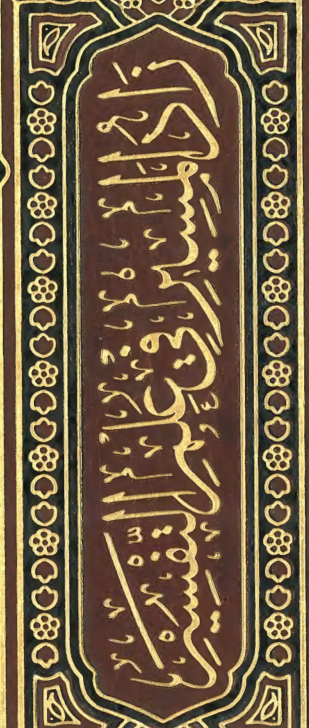 زاد المسير في علم التفسير